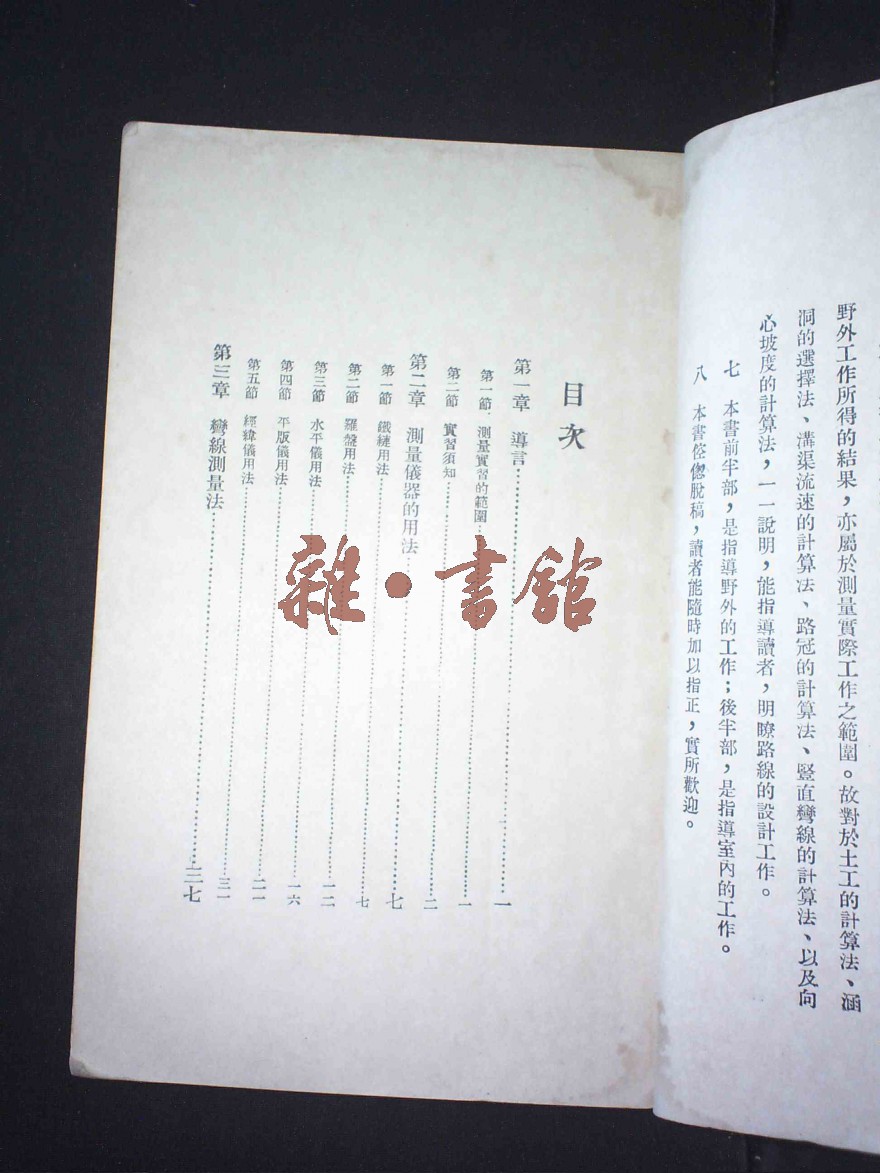 野外工作所得的結果，亦屬於測量實際工作之範圍。故對於土工的計算法、涵
洞的選擇法、溝渠流速的計算法、路冠的計算法、豎直彎線的計算法、以及向
心坡度的計算法，一一說明，能指導讀者，明瞭路線的設計工作。
七　本書前半部，是指導野外的工作；後半部，是指導室內的工作。
八　本書倥偬脫稿，讀者能隨時加以指正，實所歡迎。
目次
第一章　導言……一
第一節　測量實習的範圍……一
第二節　實習須知……二
第二章　測量儀器的用法……七
第一節　鐵鏈用法……七
第二節　羅盤用法……七
第三節　水平儀用法……一二
第四節　平版儀用法……一六
第五節　經緯儀用法……二一
第三章　彎線測量法
雜·書舘